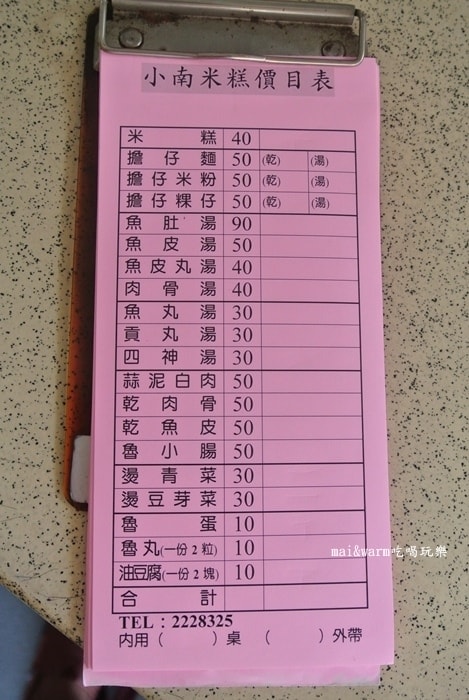 小南米糕價目表
米糕 40
擔仔麵 50 (乾) (湯)
擔仔米粉 50 (乾) (湯)
擔仔粿仔 50 (乾) (湯)
魚肚湯 90
魚皮湯 50
魚皮丸湯 40
肉骨湯 40
魚丸湯 30
貢丸湯 30
四神湯 30
蒜泥白肉 50
乾肉骨 50
乾魚皮 50
魯小腸 50
燙青菜 30
燙豆芽菜 30
魯蛋 10
魯丸(一份2粒) 10
油豆腐(一份2塊) 10
合計
TEL：2228325
內用（ ）桌 （ ）外帶
mai&warm吃喝玩樂